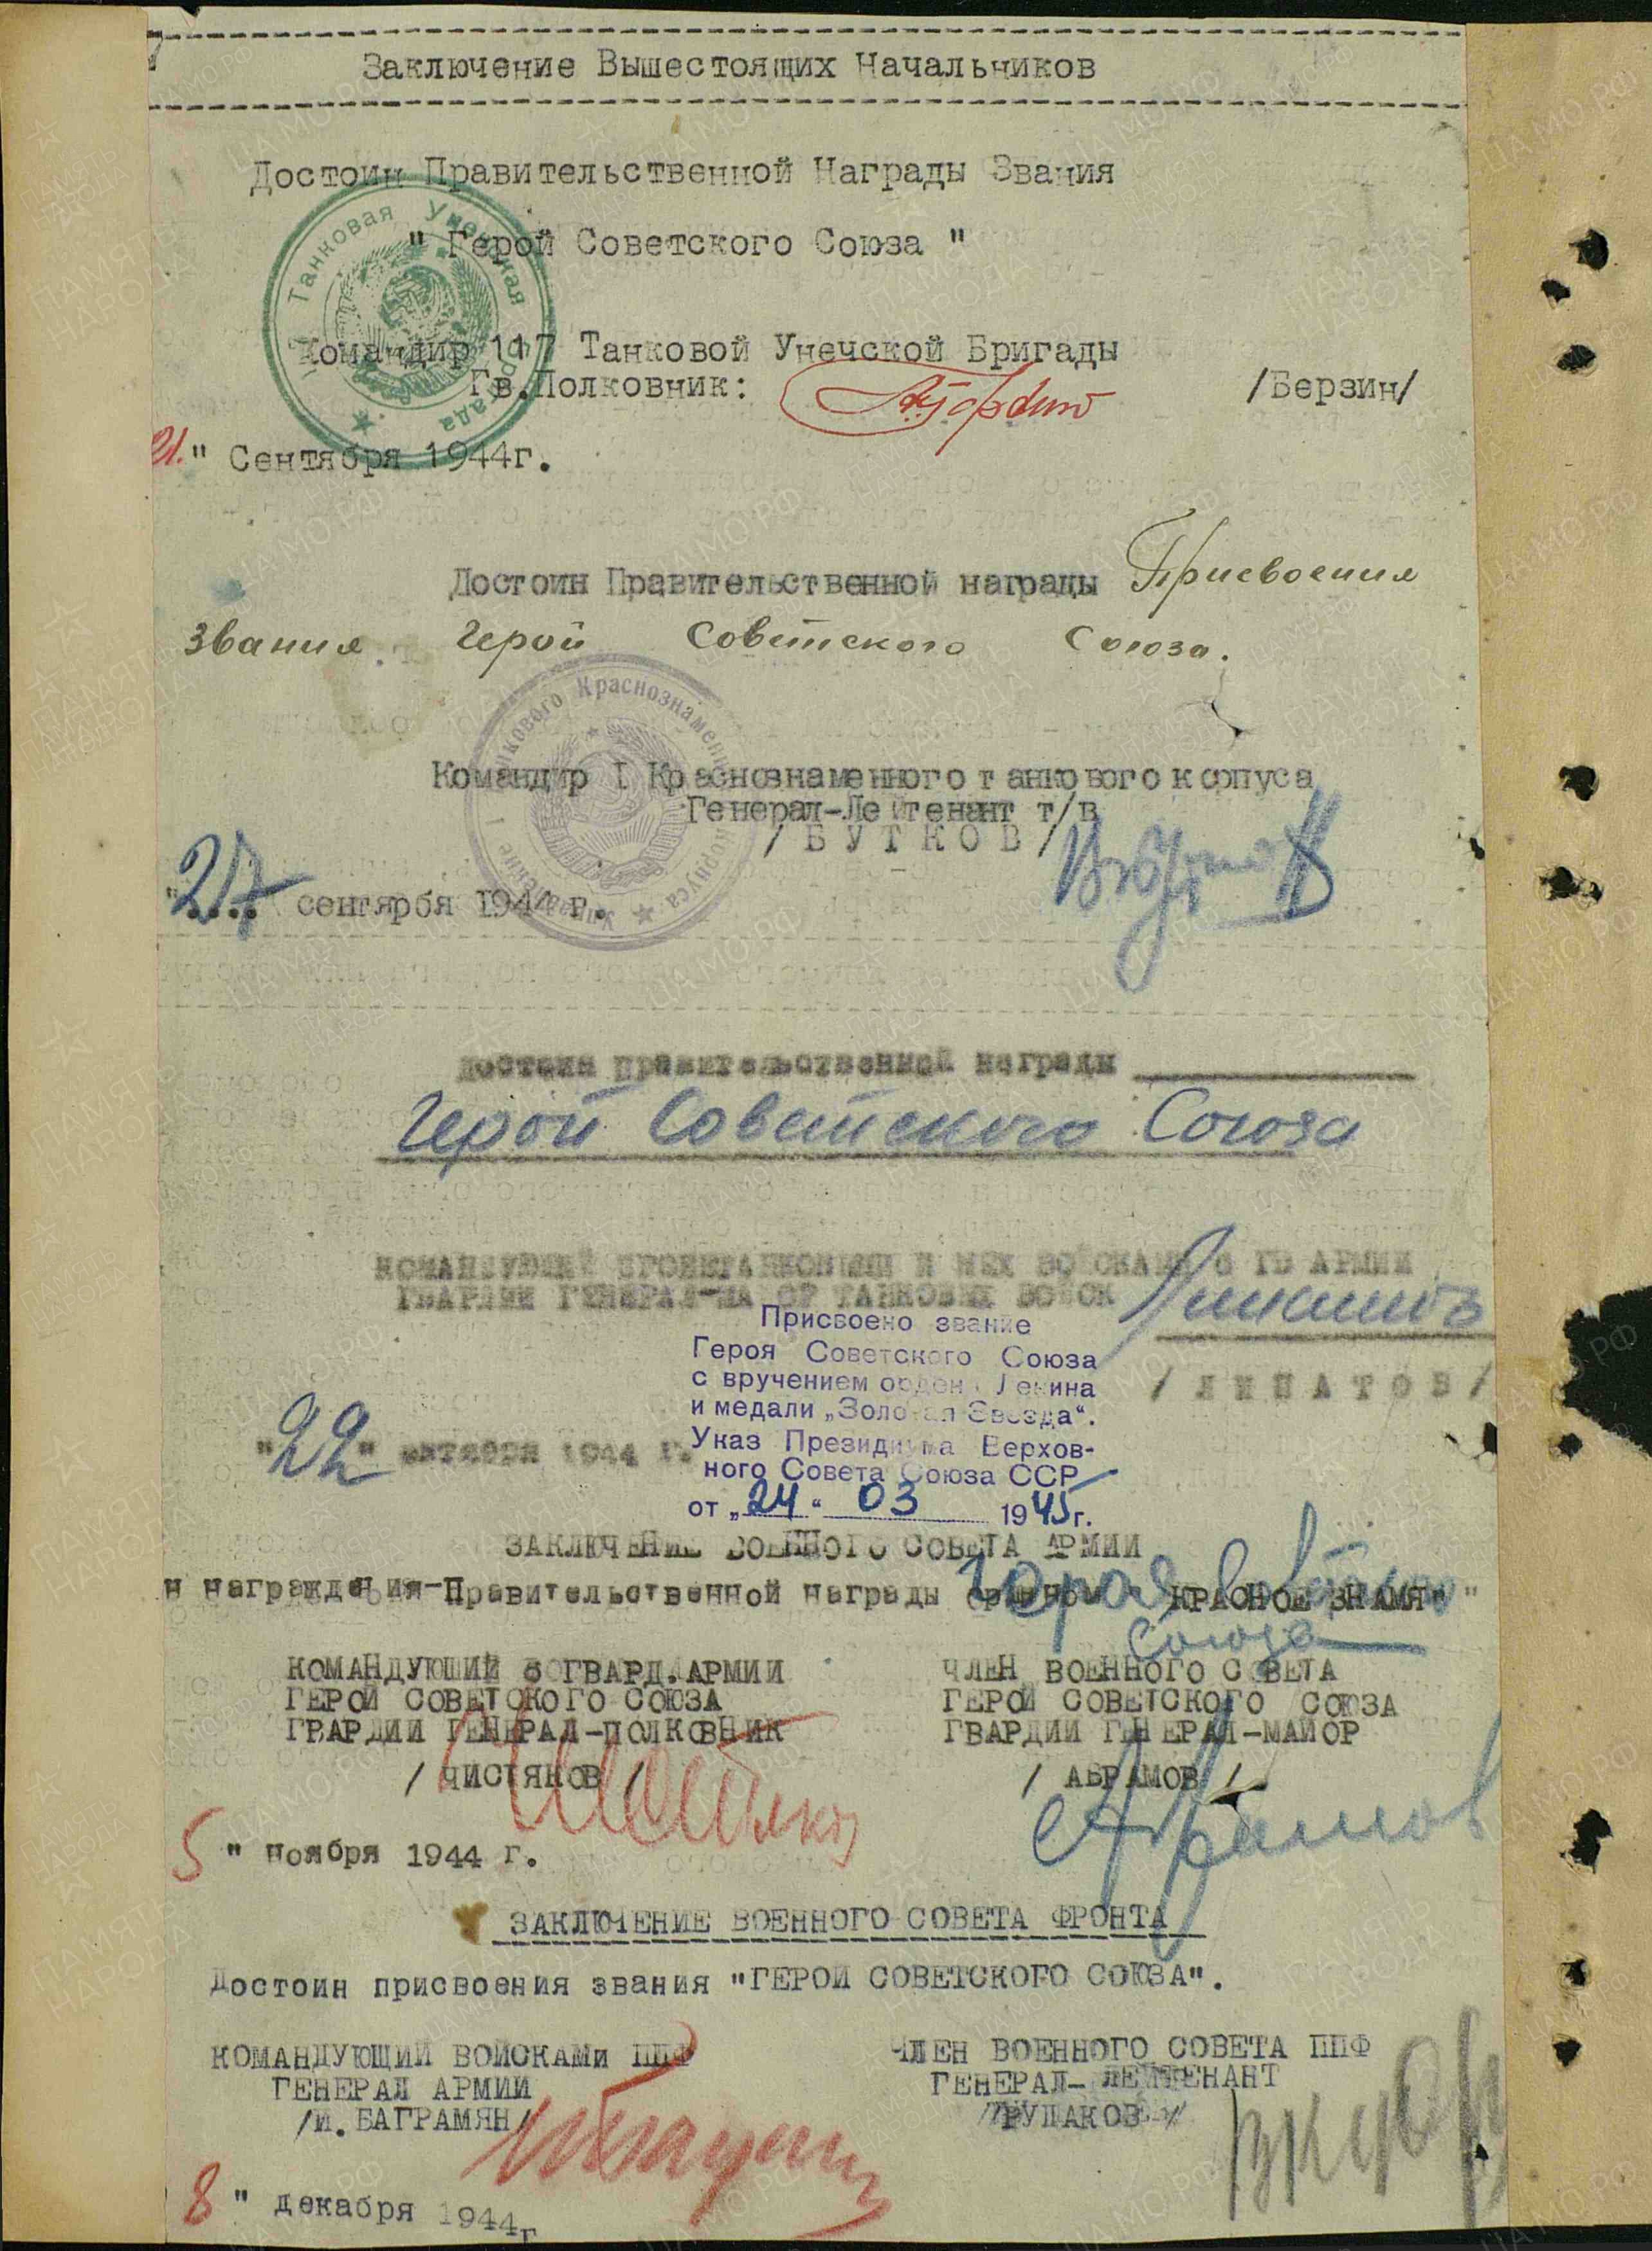 Заключение Вышестоящих Начальников
Достоин Правительственной Награды Звания
" Герой Советского Союза "
Командир 117 Танковой Унечской Бригады
Гв.Полковник: /Берзин/
21." Сентября 1944г.
Достоин Правительственной награды Присвоения
звания Герой Советского Союза.
Командир I Краснознаменного танкового корпуса
Генерал-Лейтенант т/в
/ БУТКОВ /
"27" сентярбя 1944 г.
достоин правительственной награды
Герой Советского Союза
КОМАНДУЮЩИЙ БРОНЕТАНКОВЫМИ И МЕХ ВОЙСКАМИ 6 ГВ АРМИИ
ГВАРДИИ ГЕНЕРАЛ-МАЙОР ТАНКОВЫХ ВОЙСК Липатов
/ ЛИПАТОВ /
Присвоено звание
Героя Советского Союза
с вручением ордена Ленина
и медали „Золотая Звезда“.
Указ Президиума Верхов-
ного Совета Союза ССР
от „24“ 03 1945г.
"22" октября 1944 г.
ЗАКЛЮЧЕНИЕ ВОЕННОГО СОВЕТА АРМИИ
н награждения-Правительственной награды орденом "КРАСНОЕ ЗНАМЯ"
Героя Советского
Союза
КОМАНДУЮЩИЙ 6 ГВАРД.АРМИИ ЧЛЕН ВОЕННОГО СОВЕТА
ГЕРОЙ СОВЕТСКОГО СОЮЗА ГЕРОЙ СОВЕТСКОГО СОЮЗА
ГВАРДИИ ГЕНЕРАЛ-ПОЛКОВНИК ГВАРДИИ ГЕНЕРАЛ-МАЙОР
/ ЧИСТЯКОВ / / АБРАМОВ /
Чистяков Абрамов
5 " ноября 1944 г.
ЗАКЛЮЧЕНИЕ ВОЕННОГО СОВЕТА ФРОНТА
Достоин присвоения звания "ГЕРОЙ СОВЕТСКОГО СОЮЗА".
КОМАНДУЮЩИЙ ВОЙСКАМи ППФ ЧЛЕН ВОЕННОГО СОВЕТА ППФ
ГЕНЕРАЛ АРМИИ ГЕНЕРАЛ- ЛЕЙТЕНАНТ
/И. БАГРАМЯН/ /РУДАКОВ/
8 " декабря 1944г